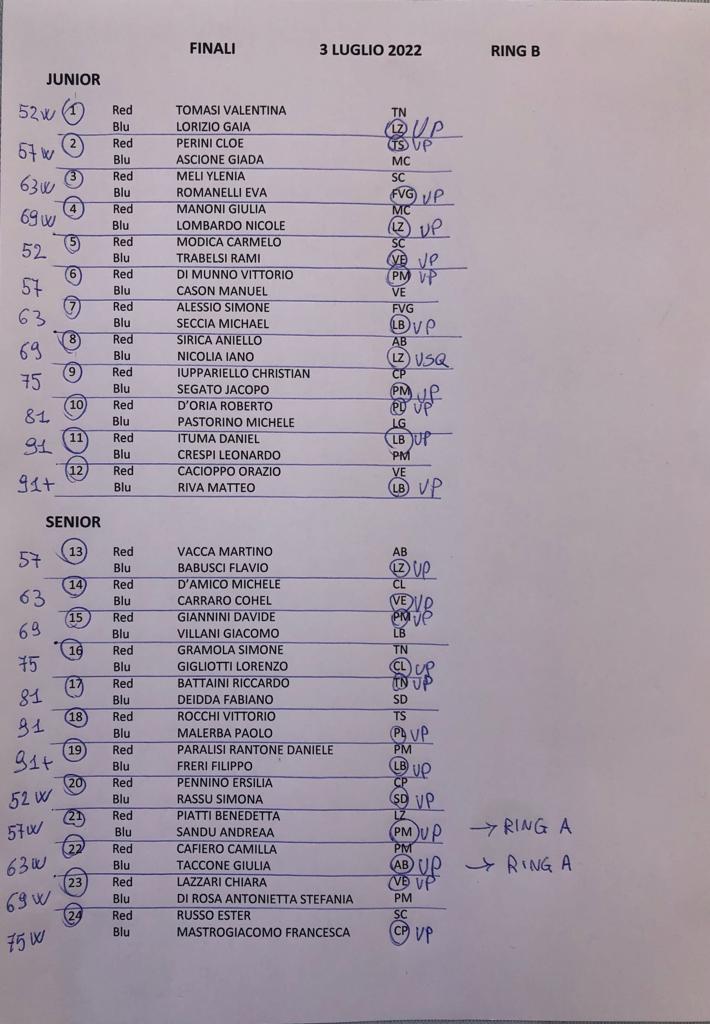 FINALI 3 LUGLIO 2022 RING B
JUNIOR
52W 1 Red TOMASI VALENTINA TN
Blu LORIZIO GAIA LZ VP
57W 2 Red PERINI CLOE TS VP
Blu ASCIONE GIADA MC
63W 3 Red MELI YLENIA SC
Blu ROMANELLI EVA FVG VP
69W 4 Red MANONI GIULIA MC
Blu LOMBARDO NICOLE LZ VP
52 5 Red MODICA CARMELO SC
Blu TRABELSI RAMI VE VP
57 6 Red DI MUNNO VITTORIO PM VP
Blu CASON MANUEL VE
63 7 Red ALESSIO SIMONE FVG
Blu SECCIA MICHAEL LB VP
69 8 Red SIRICA ANIELLO AB
Blu NICOLIA IANO LZ VSQ
75 9 Red IUPPARIELLO CHRISTIAN CP
Blu SEGATO JACOPO PM VP
81 10 Red D'ORIA ROBERTO PL VP
Blu PASTORINO MICHELE LG
91 11 Red ITUMA DANIEL LB VP
Blu CRESPI LEONARDO PM
91+ 12 Red CACIOPPO ORAZIO VE
Blu RIVA MATTEO LB VP
SENIOR
57 13 Red VACCA MARTINO AB
Blu BABUSCI FLAVIO LZ VP
63 14 Red D'AMICO MICHELE CL
Blu CARRARO COHEL VE VP
69 15 Red GIANNINI DAVIDE PM VP
Blu VILLANI GIACOMO LB
75 16 Red GRAMOLA SIMONE TN
Blu GIGLIOTTI LORENZO CL VP
81 17 Red BATTAINI RICCARDO TN VP
Blu DEIDDA FABIANO SD
91 18 Red ROCCHI VITTORIO TS
Blu MALERBA PAOLO PL VP
91+ 19 Red PARALISI RANTONE DANIELE PM
Blu FRERI FILIPPO LB VP
52 W 20 Red PENNINO ERSILIA CP
Blu RASSU SIMONA SD VP
57W 21 Red PIATTI BENEDETTA LZ
Blu SANDU ANDREAA PM VP → RING A
63W 22 Red CAFIERO CAMILLA PM
Blu TACCONE GIULIA AB VP → RING A
69 W 23 Red LAZZARI CHIARA VE VP
Blu DI ROSA ANTONIETTA STEFANIA PM
75 W 24 Red RUSSO ESTER SC
Blu MASTROGIACOMO FRANCESCA CP VP